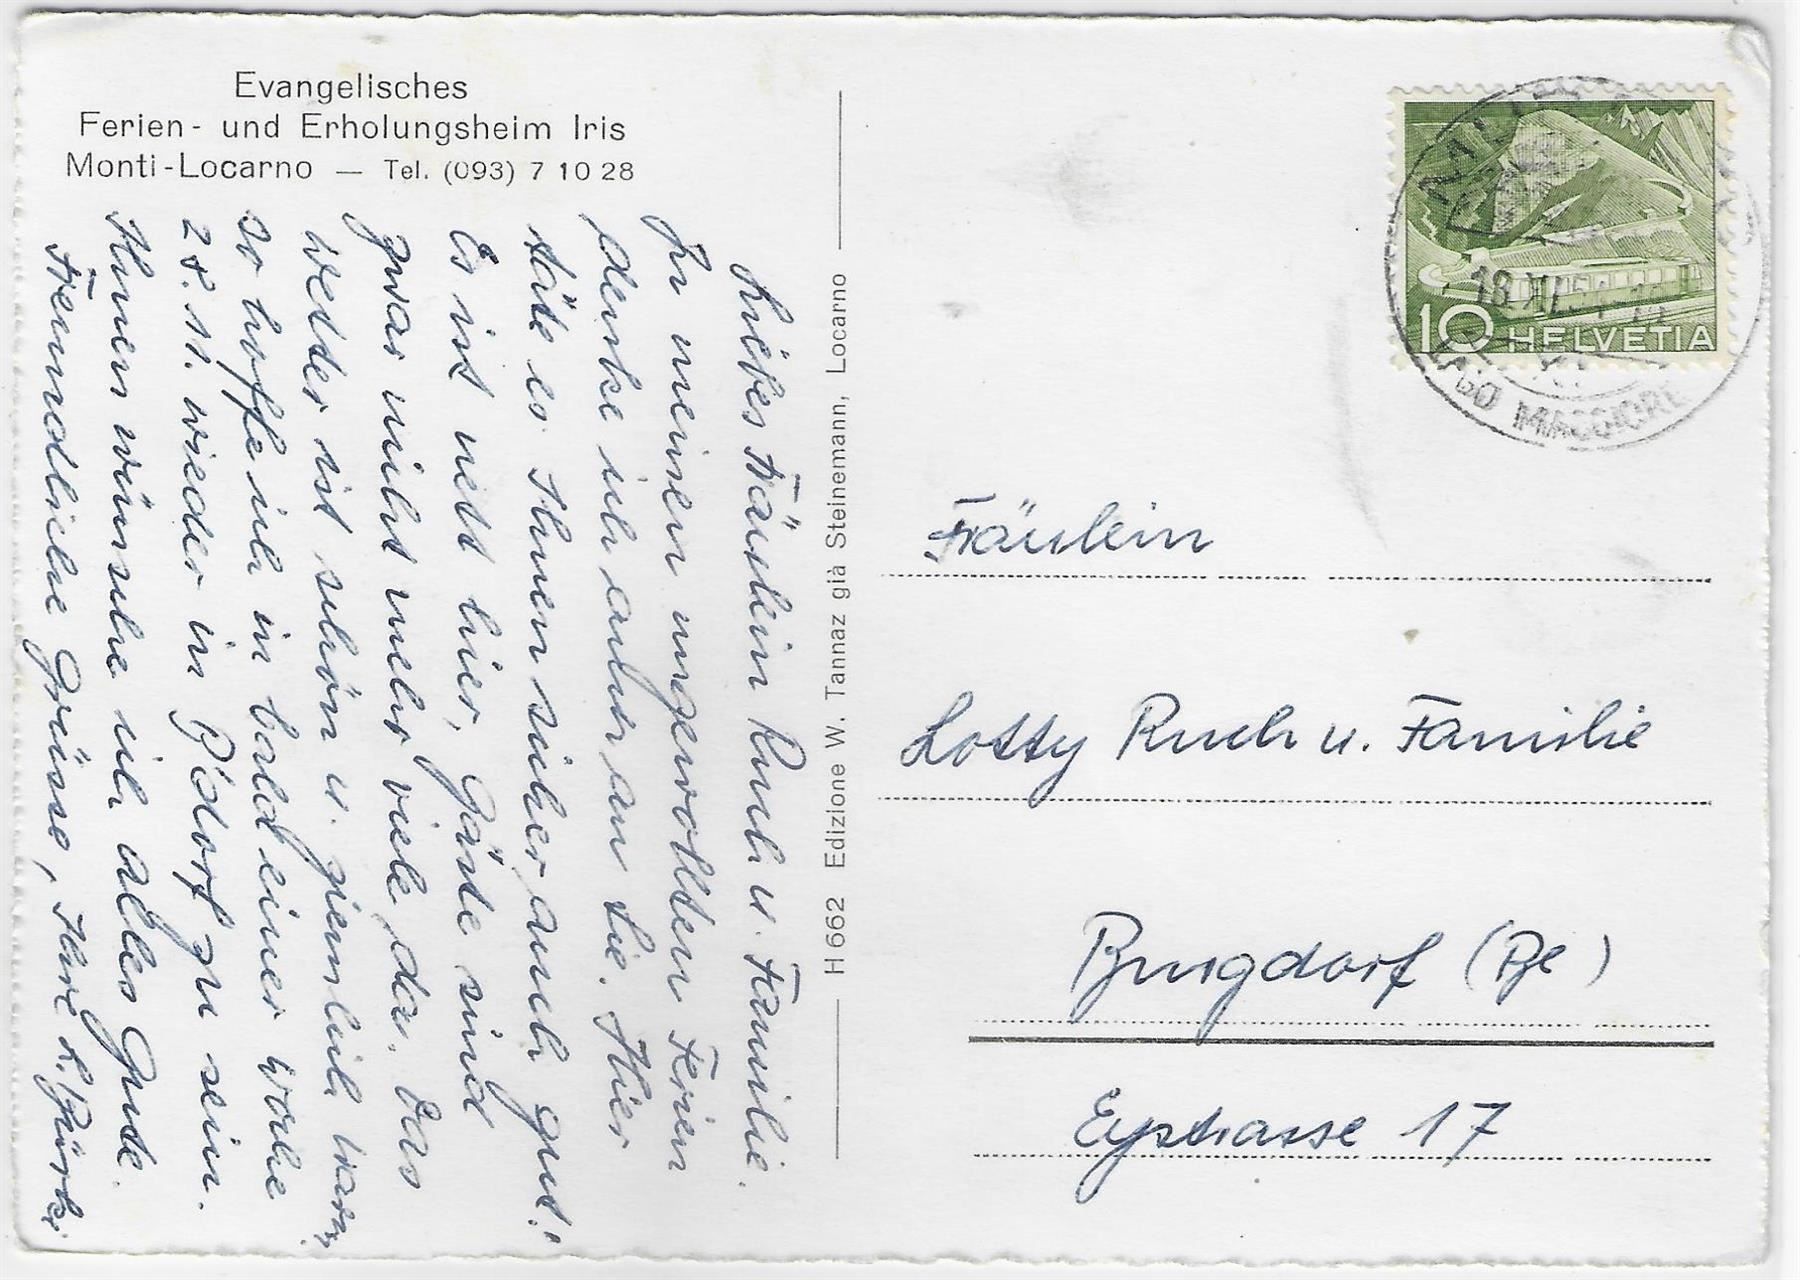 Evangelisches
Ferien- und Erholungsheim Iris
Monti-Locarno — Tel. (093) 7 10 28
Liebes Fräulein Ruch u. Familie.
In meinen ungewollten Ferien
denke ich auch an Sie. Hier
täte es Ihnen sicher auch gut!
Es ist nett hier, Gäste sind
zwar nicht mehr viele da. Das
Wetter ist schön u. ziemlich warm,
so hoffe ich in bald einer Woche
28. 11. wieder in B'dorf zu sein.
Ihnen wünsche ich alles Gute.
Freundliche Grüsse, Ihre
H 662 Edizione W. Tannaz già Steinemann, Locarno
10 HELVETIA
18. XI.
LAGO MAGGIORE
Fräulein
Lotty Ruch u. Familie
Burgdorf (Be)
Eystrasse 17